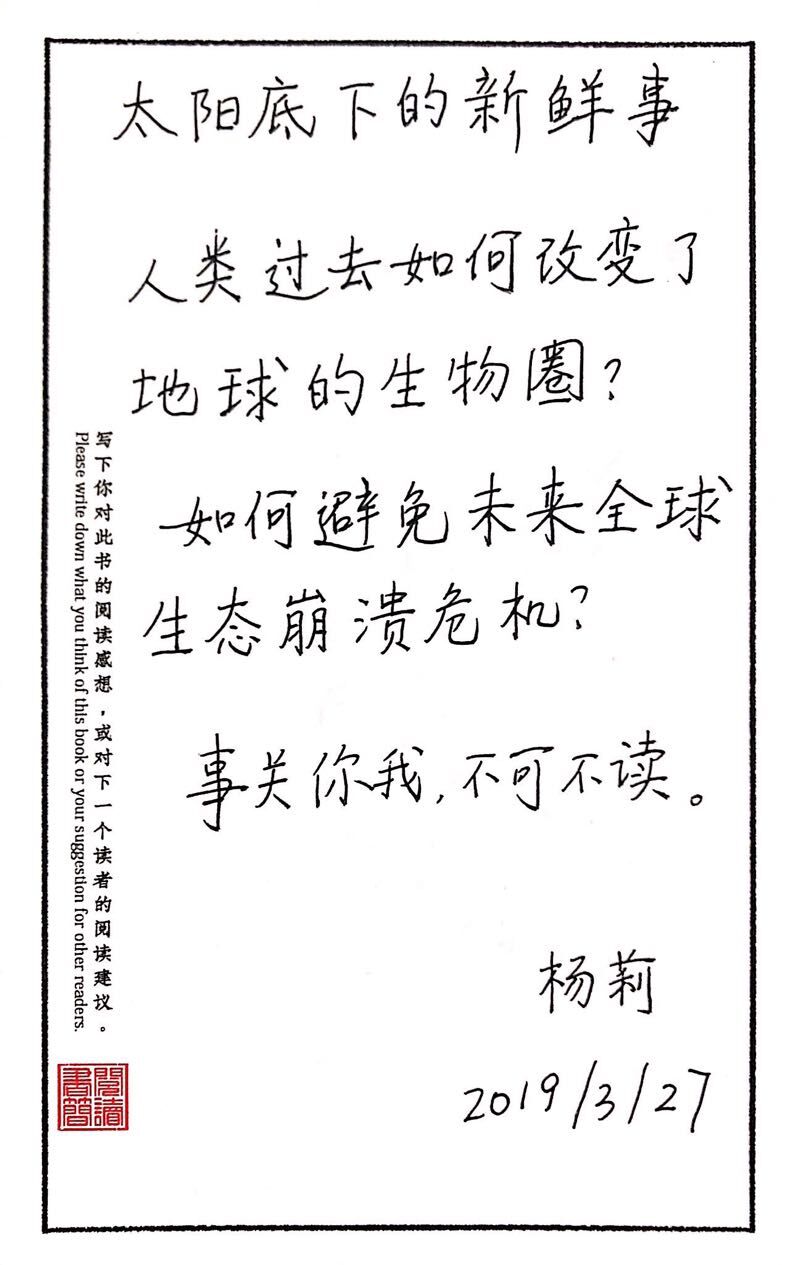 太阳底下的新鲜事
人类过去如何改变了
地球的生物圈？
如何避免未来全球
生态崩溃危机？
事关你我，不可不读。
杨莉
2019/3/27
写下你对此书的阅读感想，或对下一个读者的阅读建议。
Please write down what you think of this book or your suggestion for other readers.
閱讀
書簡